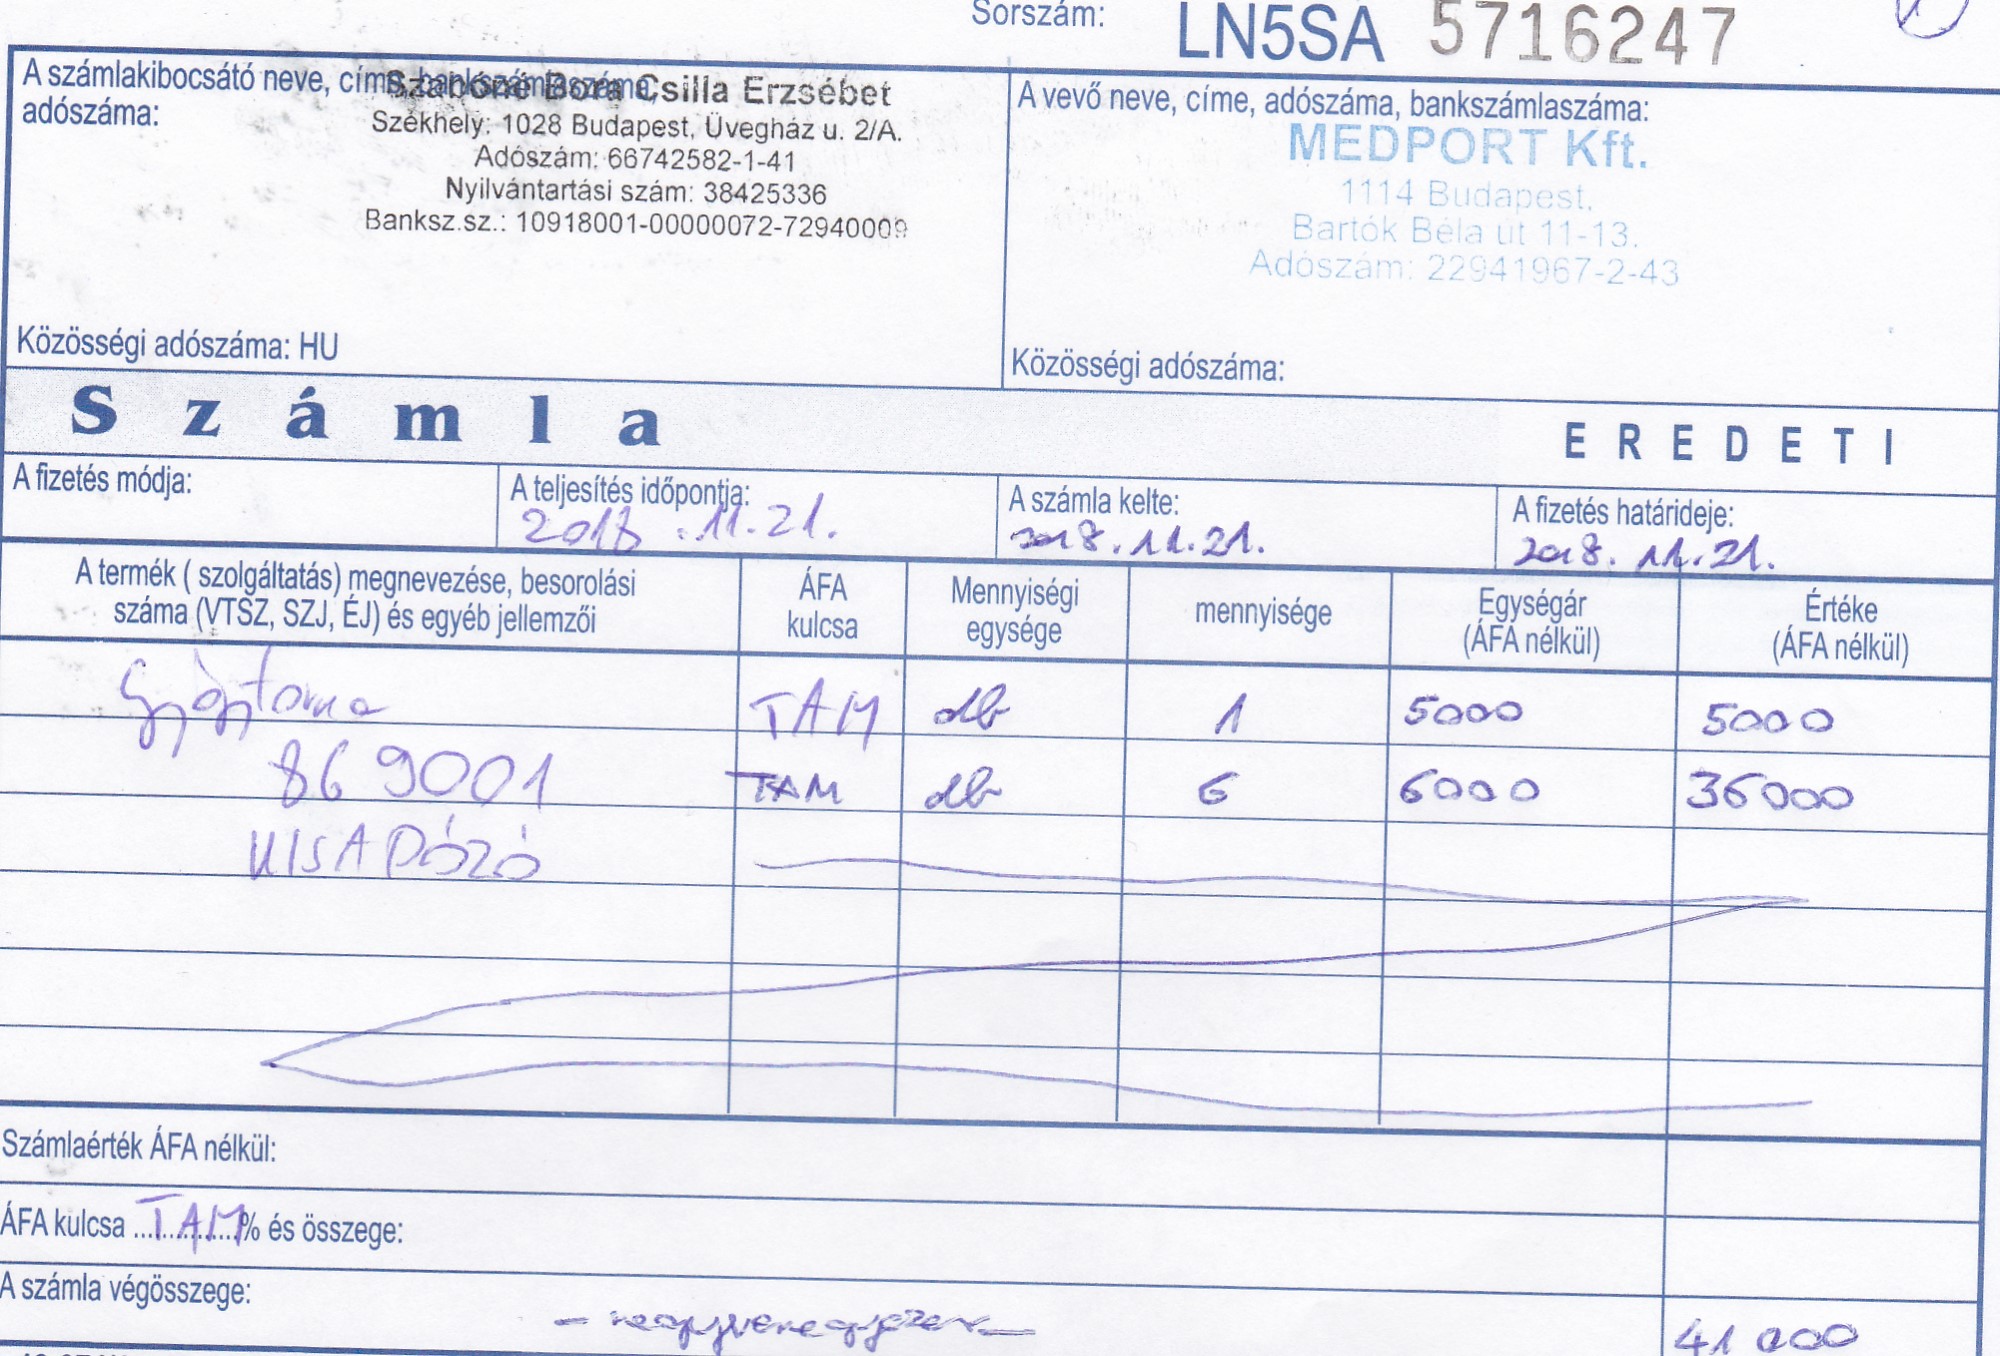 Sorszám: LN5SA 5716247
A számlakibocsátó neve, címe, bankszámlaszáma,
adószáma:
Szabóné Bora Csilla Erzsébet
Székhely: 1028 Budapest, Üvegház u. 2/A.
Adószám: 66742582-1-41
Nyilvántartási szám: 38425336
Banksz.sz.: 10918001-00000072-72940009
Közösségi adószáma: HU
A vevő neve, címe, adószáma, bankszámlaszáma:
MEDPORT Kft.
1114 Budapest,
Bartók Béla út 11-13.
Adószám: 22941967-2-43
Közösségi adószáma:
Számla
EREDETI
A fizetés módja:
A teljesítés időpontja:
2018.11.21.
A számla kelte:
2018.11.21.
A fizetés határideje:
2018.11.21.
A termék ( szolgáltatás) megnevezése, besorolási
száma (VTSZ, SZJ, ÉJ) és egyéb jellemzői
ÁFA
kulcsa
Mennyiségi
egysége
mennyisége
Egységár
(ÁFA nélkül)
Értéke
(ÁFA nélkül)
Gyógytorna TAM db 1 5000 5000
869001 TAM db 6 6000 36000
KISADÓZÓ
Számlaérték ÁFA nélkül:
ÁFA kulcsa ..TAM..% és összege:
A számla végösszege:
- negyvenegyezer - 41 000